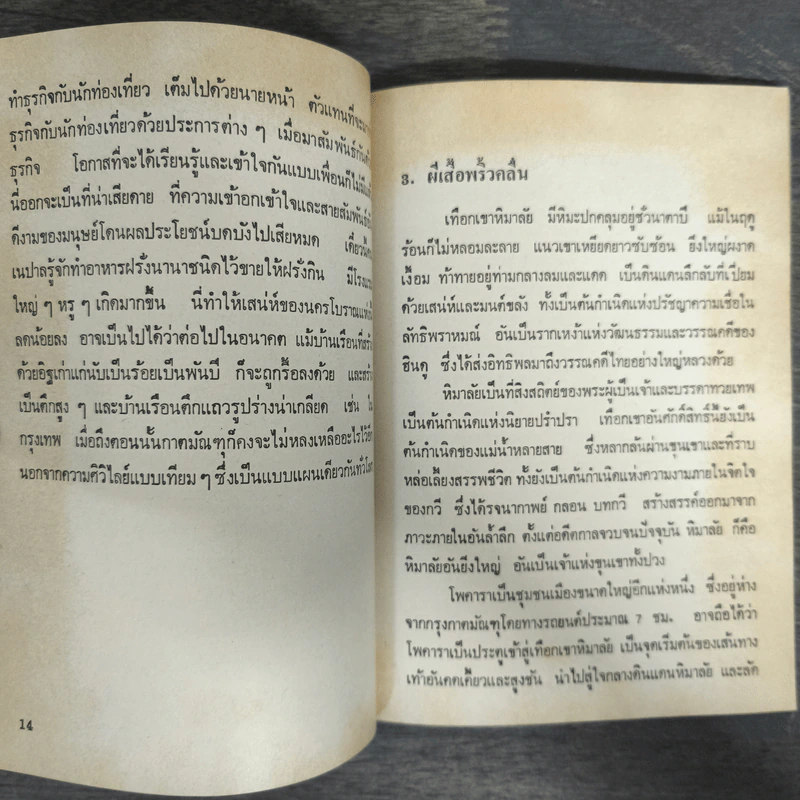 ทำธุรกิจกับนักท่องเที่ยว เต็มไปด้วยนายหน้า ตัวแทนที่จะมา
ธุรกิจกับนักท่องเที่ยวด้วยประการต่าง ๆ เมื่อมาสัมพันธ์กันด้
ธุรกิจ โอกาสที่จะได้เรียนรู้และเข้าใจกันแบบเพื่อนก็ไม่มี
นี่ออกจะเป็นที่น่าเสียดาย ที่ความเข้าอกเข้าใจและสายสัมพันธ์
ดีงามของมนุษย์โดนผลประโยชน์บดบังไปเสียหมด เดี๋ยวนี้
เนปาลรู้จักทำอาหารฝรั่งนานาชนิดไว้ขายให้ฝรั่งกิน มีโรงแรม
ใหญ่ ๆ หรู ๆ เกิดมากขึ้น นี่ทำให้เสน่ห์ของนครโบราณแห่ง
ลดน้อยลง อาจเป็นไปได้ว่าต่อไปในอนาคต แม้บ้านเรือนที่สร้
ด้วยอิฐเก่าแก่นับเป็นร้อยเป็นพันปี ก็จะถูกรื้อลงด้วย และสร้
เป็นตึกสูง ๆ และบ้านเรือนตึกแถวรูปร่างน่าเกลียด เช่น ใน
กรุงเทพ เมื่อถึงตอนนั้นกาตมัณฑุก็คงจะไม่หลงเหลืออะไรไว้
นอกจากความศิวิไลย์แบบเทียม ๆ ซึ่งเป็นแบบแผนเดียวกันทั่วโลก
14
3. ผีเสื้อพริ้วคลื่น
เทือกเขาหิมาลัย มีหิมะปกคลุมอยู่ชั่วนาตาปี แม้ในฤดู
ร้อนก็ไม่หลอมละลาย แนวเขาเหยียดยาวซับซ้อน ยิ่งใหญ่ผงาด
เงื้อม ท้าทายอยู่ท่ามกลางลมและแดด เป็นดินแดนลึกลับที่เปี่ยม
ด้วยเสน่ห์และมนต์ขลัง ทั้งเป็นต้นกำเนิดแห่งปรัชญาความเชื่อใน
ลัทธิพราหมณ์ อันเป็นรากเหง้าแห่งวัฒนธรรมและวรรณคดีของ
ฮินดู ซึ่งได้ส่งอิทธิพลมาถึงวรรณคดีไทยอย่างใหญ่หลวงด้วย
หิมาลัยเป็นที่สิงสถิตย์ของพระผู้เป็นเจ้าและบรรดาทวยเทพ
เป็นต้นกำเนิดแห่งนิยายปรำปรา เทือกเขาอันศักดิ์สิทธิ์นี้ยังเป็น
ต้นกำเนิดของแม่น้ำหลายสาย ซึ่งหลากล้นผ่านขุนเขาและที่ราบ
หล่อเลี้ยงสรรพชีวิต ทั้งยังเป็นต้นกำเนิดแห่งความงามภายในจิตใจ
ของกวี ซึ่งได้รจนากาพย์ กลอน บทกวี สร้างสรรค์ออกมาจาก
ภาวะภายในอันล้ำลึก ตั้งแต่อดีตกาลจวบจนปัจจุบัน หิมาลัย ก็คือ
หิมาลัยอันยิ่งใหญ่ อันเป็นเจ้าแห่งขุนเขาทั้งปวง
โพคาราเป็นชุมชนเมืองขนาดใหญ่อีกแห่งหนึ่ง ซึ่งอยู่ห่าง
จากกรุงกาตมัณฑุโดยทางรถยนต์ประมาณ 7 ชม. อาจถือได้ว่า
โพคาราเป็นประตูเข้าสู่เทือกเขาหิมาลัย เป็นจุดเริ่มต้นของเส้นทาง
เท้าอันคดเคี้ยวและสูงชัน นำไปสู่ใจกลางดินแดนหิมาลัย และลัด